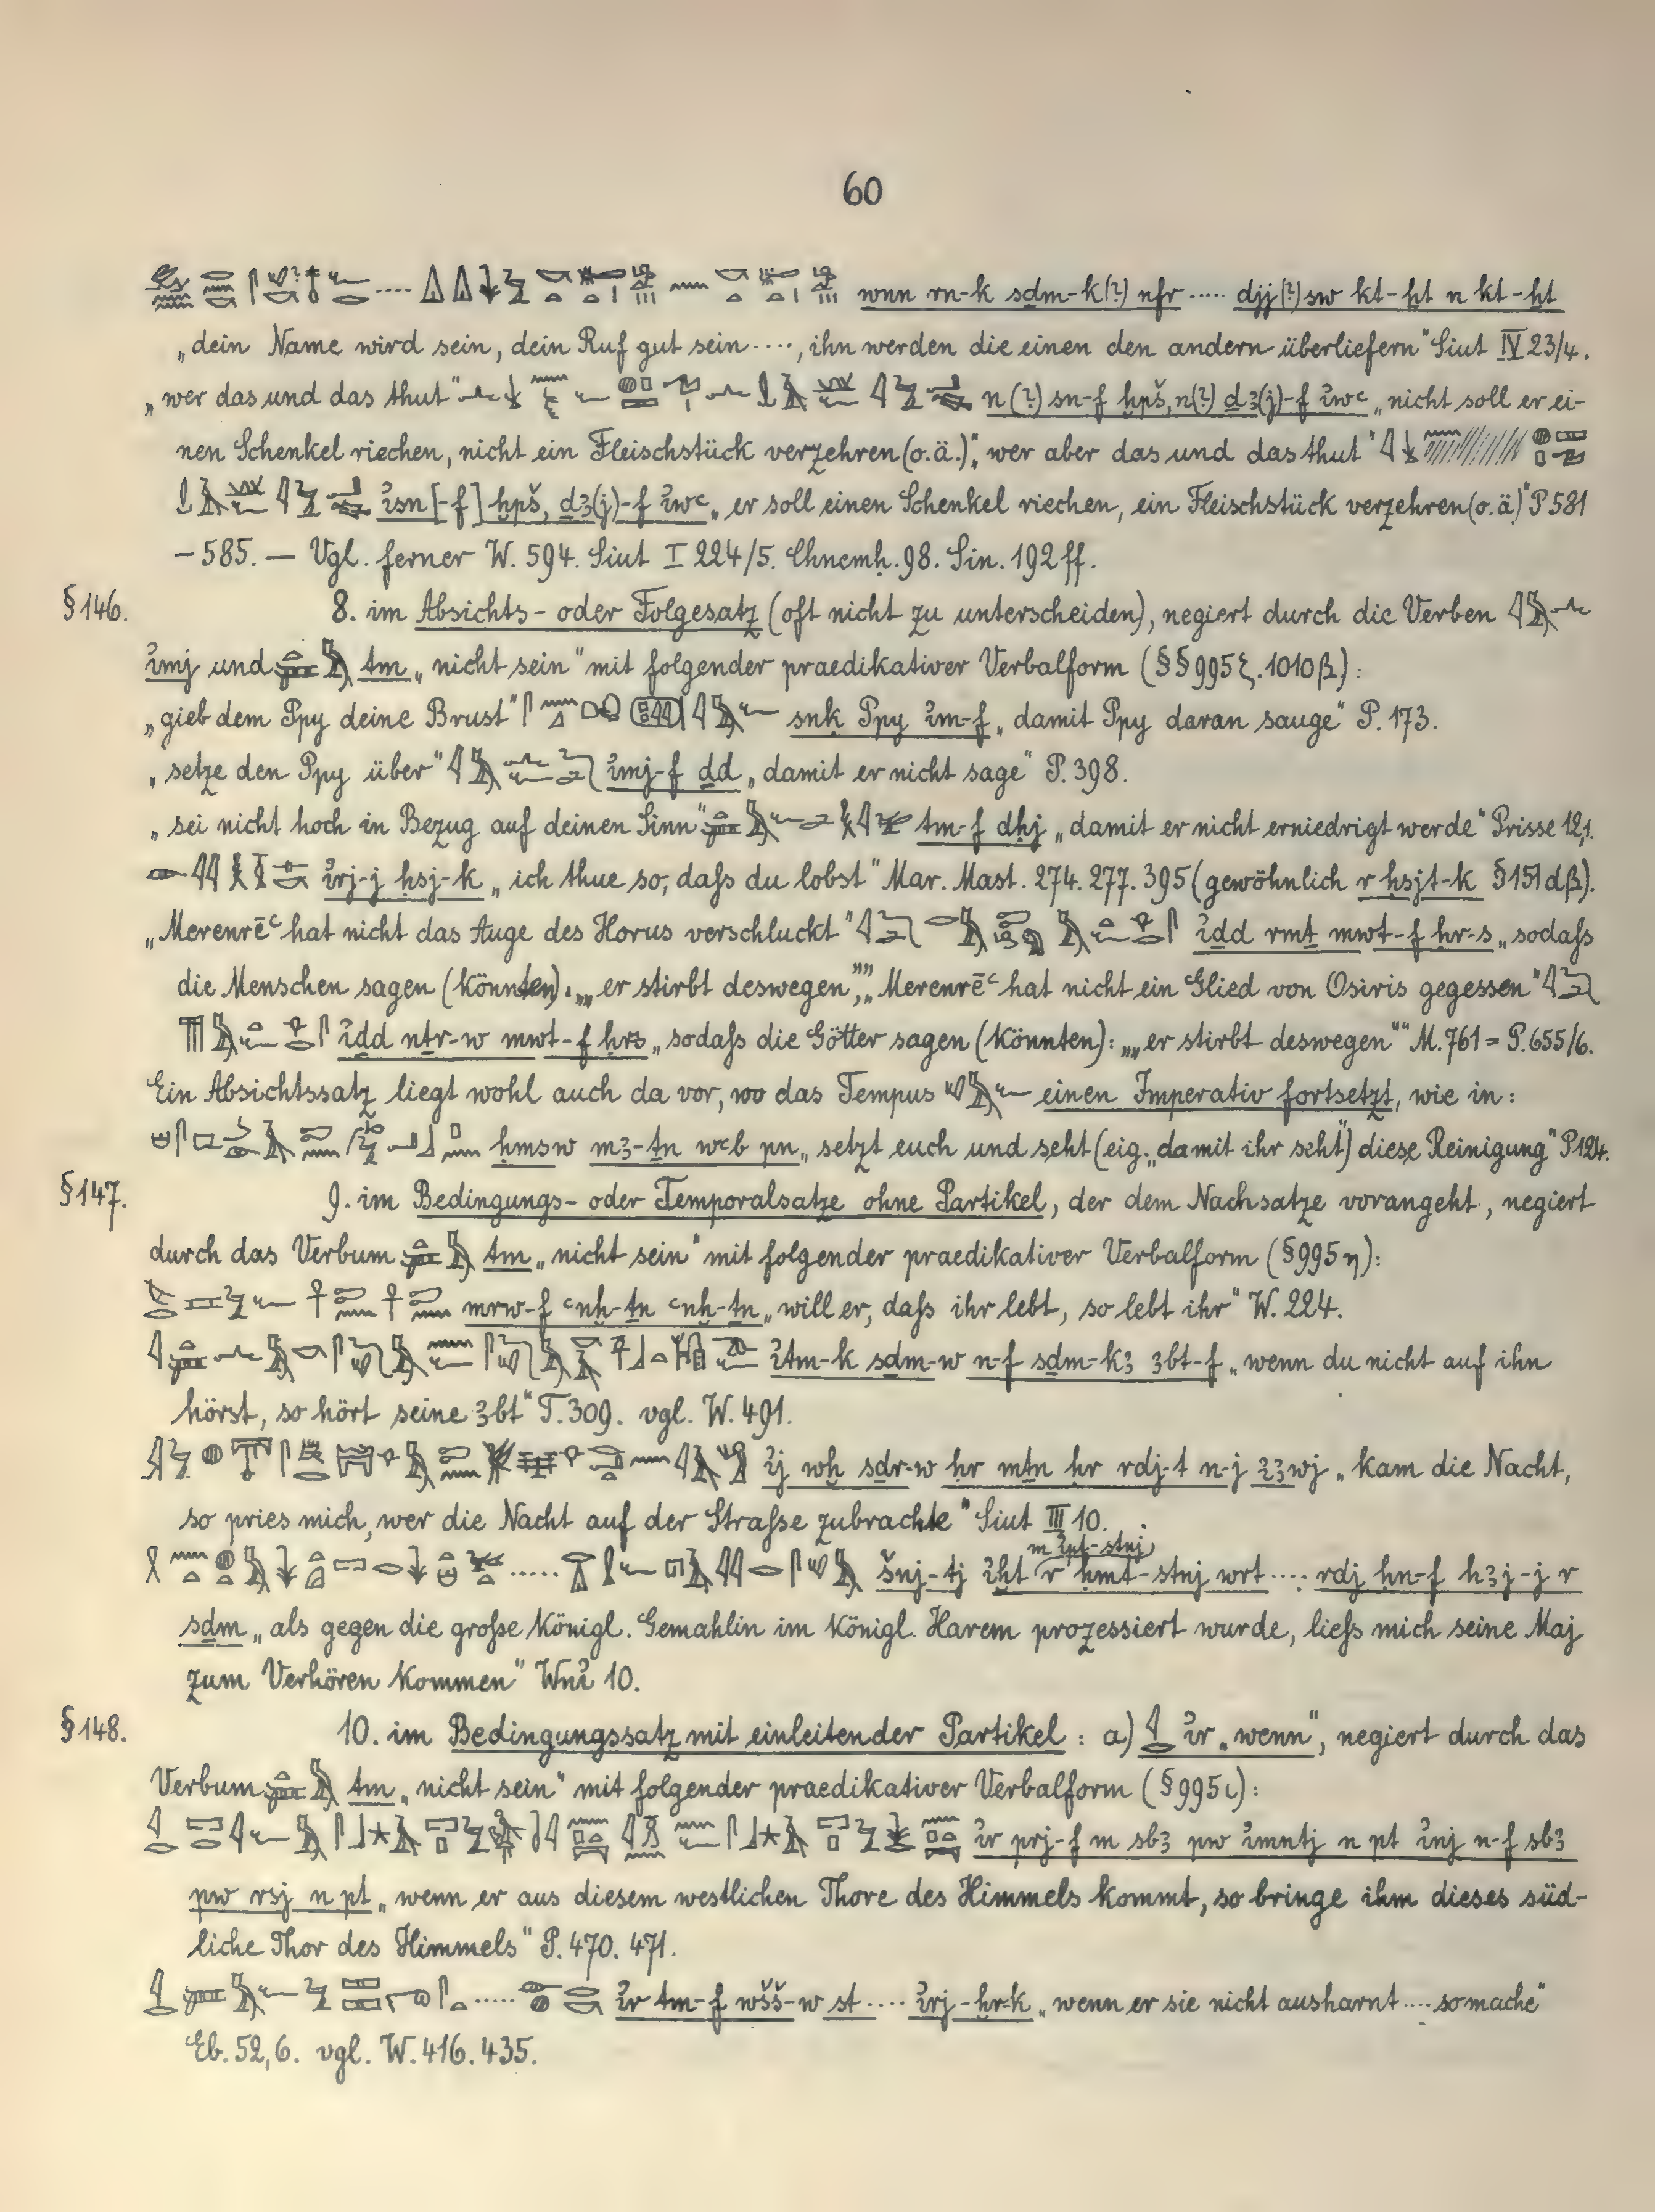 60
wnn rn-k sḏm-k(?) nfr ..... djj(?) sw kt-ḫt n kt-ḫt
„dein Name wird sein, dein Ruf gut sein ...., ihn werden die einen den andern überliefern“ Siut IV 23/4.
„wer das und das thut“ n(?) sn-f ḫpš, n(?) ḏꜣ(j)-f ı͗wꜥ „nicht soll er ei-
nen Schenkel riechen, nicht ein Fleischstück verzehren (o.ä.)“, „wer aber das und das thut“
ı͗sn[-f] ḫpš, ḏꜣ(j)-f ı͗wꜥ „er soll einen Schenkel riechen, ein Fleischstück verzehren (o.ä.)“ P 581
– 585. — Vgl. ferner W. 594. Siut I 224/5. Chnemḥ. 98. Sin. 192 ff.
§ 146. 8. im Absichts- oder Folgesatz (oft nicht zu unterscheiden), negiert durch die Verben
ı͗mj und tm „nicht sein“ mit folgender praedikativer Verbalform (§§ 995 ζ. 1010 β):
„gieb dem Ppy deine Brust“ snk Ppy ı͗m-f „damit Ppy daran sauge“ P. 173.
„setze den Ppy über“ ı͗mj-f ḏd „damit er nicht sage“ P. 398.
„sei nicht hoch in Bezug auf deinen Sinn“ tm-f dḥj „damit er nicht erniedrigt werde“ Prisse 12,1.
ı͗rj-j ḥsj-k „ich thue so, daſs du lobst“ Mar. Mast. 274. 277. 395 (gewöhnlich r ḥsjt-k § 151 dβ).
„Merenrēꜥ hat nicht das Auge des Horus verschluckt“ ı͗ḏd rmṯ mwt-f ḥr-s „sodaſs
die Menschen sagen (könnten): „„er stirbt deswegen““, „Merenrēꜥ hat nicht ein Glied von Osiris gegessen“
ı͗ḏd nṯr-w mwt-f ḥrs „sodaſs die Götter sagen (könnten): „„er stirbt deswegen““ M. 761 = P. 655/6.
Ein Absichtssatz liegt wohl auch da vor, wo das Tempus einen Imperativ fortsetzt, wie in:
ḥmsw mꜣ-ṯn wꜥb pn „setzt euch und seht (eig. „damit ihr seht“) diese Reinigung“ P 124.
§ 147. 9. im Bedingungs- oder Temporalsatze ohne Partikel, der dem Nachsatze vorangeht, negiert
durch das Verbum tm „nicht sein“ mit folgender praedikativer Verbalform (§ 995 η):
mrw-f ꜥnḫ-ṯn ꜥnḫ-ṯn „will er, daſs ihr lebt, so lebt ihr“ W. 224.
ı͗tm-k sḏm-w n-f sḏm-kꜣ ꜣbt-f „wenn du nicht auf ihn
hörst, so hört seine ꜣbt“ T. 309. vgl. W. 491.
ı͗j wḫ sḏr-w ḥr mṯn ḥr rdj-t n-j ı͗ꜣwj „kam die Nacht,
so pries mich, wer die Nacht auf der Straſse zubrachte“ Siut III 10.
m ı͗pt-stnj
šnj-tj ı͗ḫt r ḥmt-stnj wrt .... rdj ḥn-f hꜣj-j r
sḏm „als gegen die groſse königl. Gemahlin im königl. Harem prozessiert wurde, lieſs mich seine Maj
zum Verhören kommen“ Wnı͗ 10.
§ 148. 10. im Bedingungssatz mit einleitender Partikel: a) ı͗r „wenn“, negiert durch das
Verbum tm „nicht sein“ mit folgender praedikativer Verbalform (§ 995 ι):
ı͗r prj-f m sbꜣ pw ı͗mntj n pt ı͗nj n-f sbꜣ
pw rsj n pt „wenn er aus diesem westlichen Thore des Himmels kommt, so bringe ihm dieses süd-
liche Thor des Himmels“ P. 470. 471.
ı͗r tm-f wšš-w st .... ı͗rj-ḫr-k „wenn er sie nicht ausharnt .... so mache“
Eb. 52,6. vgl. W. 416. 435.